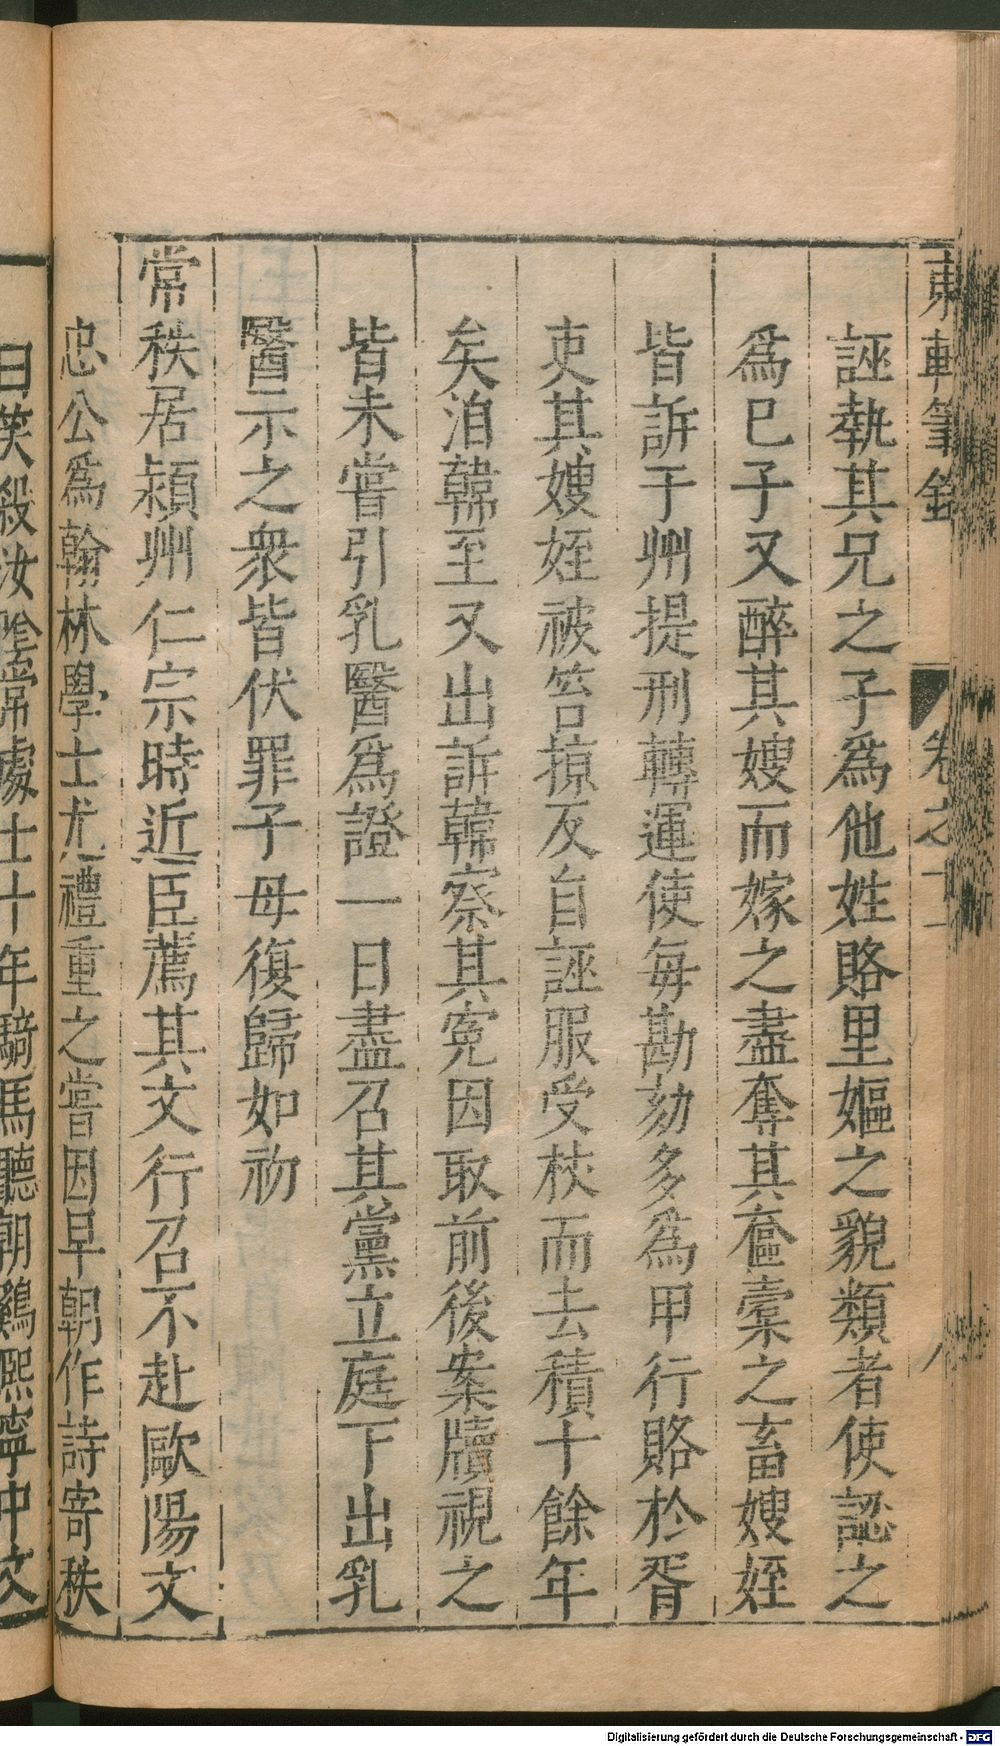 東軒筆錄
卷之十一
八
誣執其兄之子爲他姓賂里嫗之貌類者使認之
爲巳子又醉其嫂而嫁之盡奪其奩槖之畜嫂姪
皆訴于州提刑轉運使每勘劾多爲甲行賂於胥
吏其嫂姪被笞掠反自誣服受杖而去積十餘年
矣洎韓至又出訴韓察其寃因取前後案牘視之
皆未嘗引乳醫爲證一日盡召其黨立庭下出乳
醫示之衆皆伏罪子母復歸如初
常秩居潁州仁宗時近臣薦其文行召不赴歐陽文
忠公爲翰林學士尤禮重之嘗因早朝作詩寄秩
曰笑殺汝陰常處士十年騎馬聽朝鷄熙寧中文
Digitalisierung gefördert durch die Deutsche Forschungsgemeinschaft - DFG